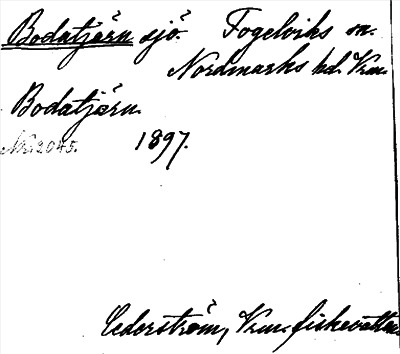 Bodatjärn sjö. Fogelviks sn.
Nordmarks hd. Vrm.
Bodatjärn.
Nr. 2045. 1897.
Cederström, Vrm. fiskevatten